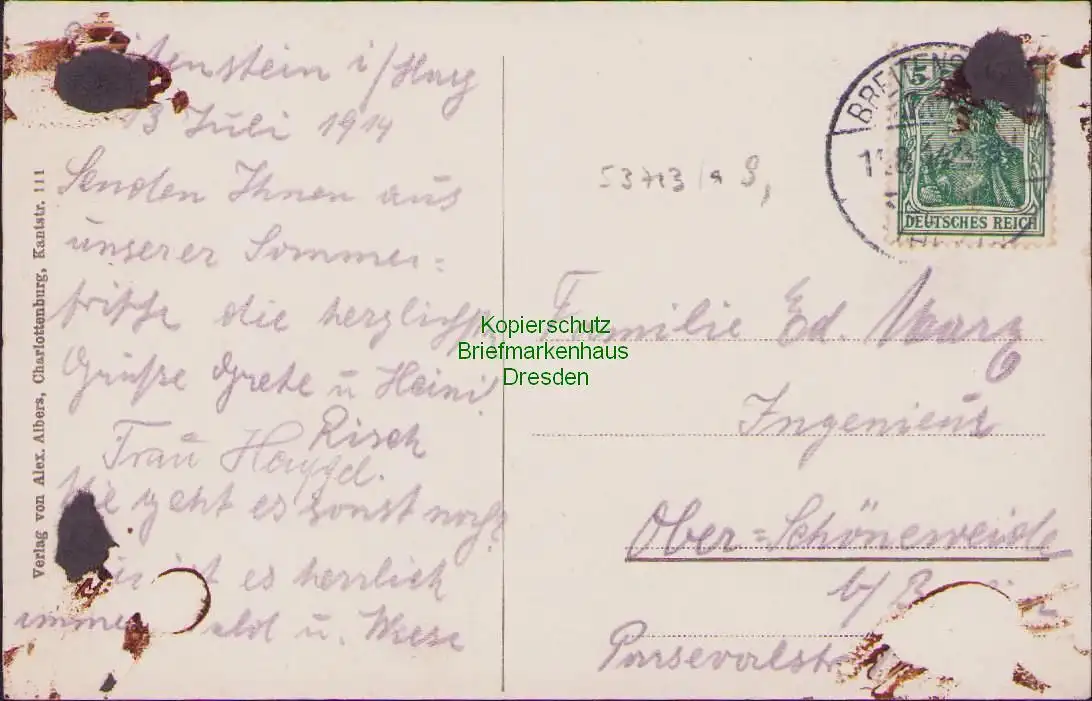 i/Harz
13 Juli 1914
Senden Ihnen aus
unserer Sommer=
frische die herzlichsten
Grüße Grete u Heini
Risch
Frau
Wie geht es sonst noch?
ist es herrlich
immer u. Wiese
Verlag von Alex. Albers, Charlottenburg, Kantstr. 111
BREITENS
5
DEUTSCHES REICH
Familie Ed.
Ingenieur
Ober=Schöneweide
b/
Parsevalstr
Kopierschutz
Briefmarkenhaus
Dresden